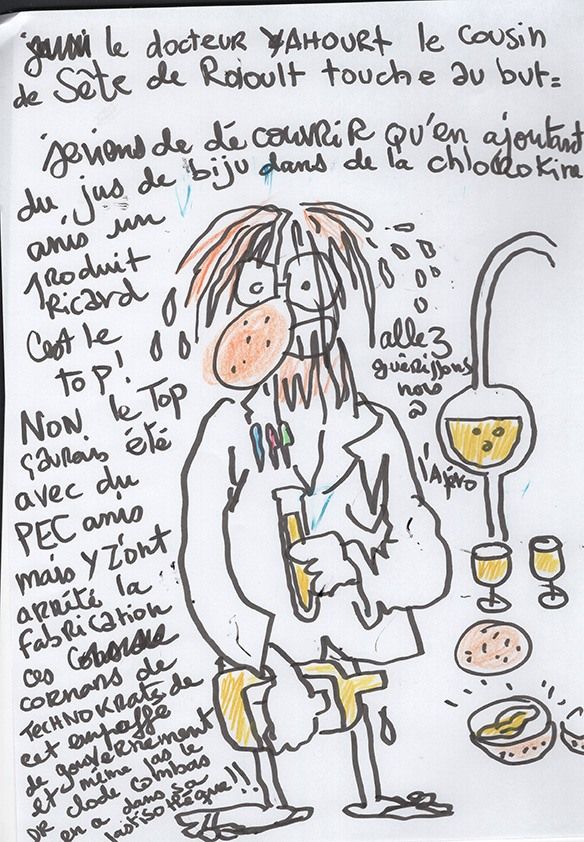 le docteur YAHOURT le cousin
de Sète de Raoult touche au but=
je viens de découvrir qu'en ajoutant
du jus de biju dans de la chlorokine
anis un
Produit
Ricard
C'est le
top!
NON le Top
çaurais été
avec du
PEC anis
mais y z'ont
arrété la
fabrication
ces
cornans de
TECHNOKRATS de
cet empaffé
de gouvernement
et même pas le
DR clode Combas
en a dans sa
!!
allez
guérissons
nous
l'Apéro